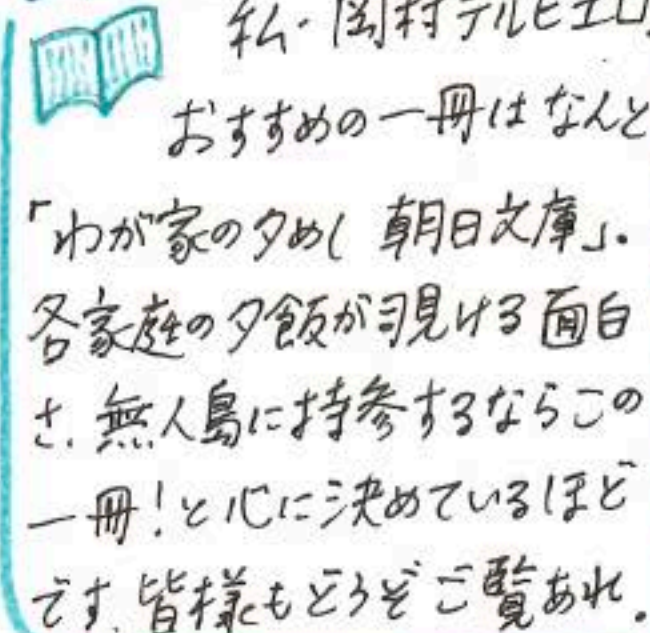 私・岡村テルヒエロ
おすすめの一冊はなんと
「わが家の夕めし 朝日文庫」。
各家庭の夕飯が覗ける面白
さ、無人島に持参するならこの
一冊！と心に決めているほど
です。皆様もどうぞご覧あれ。